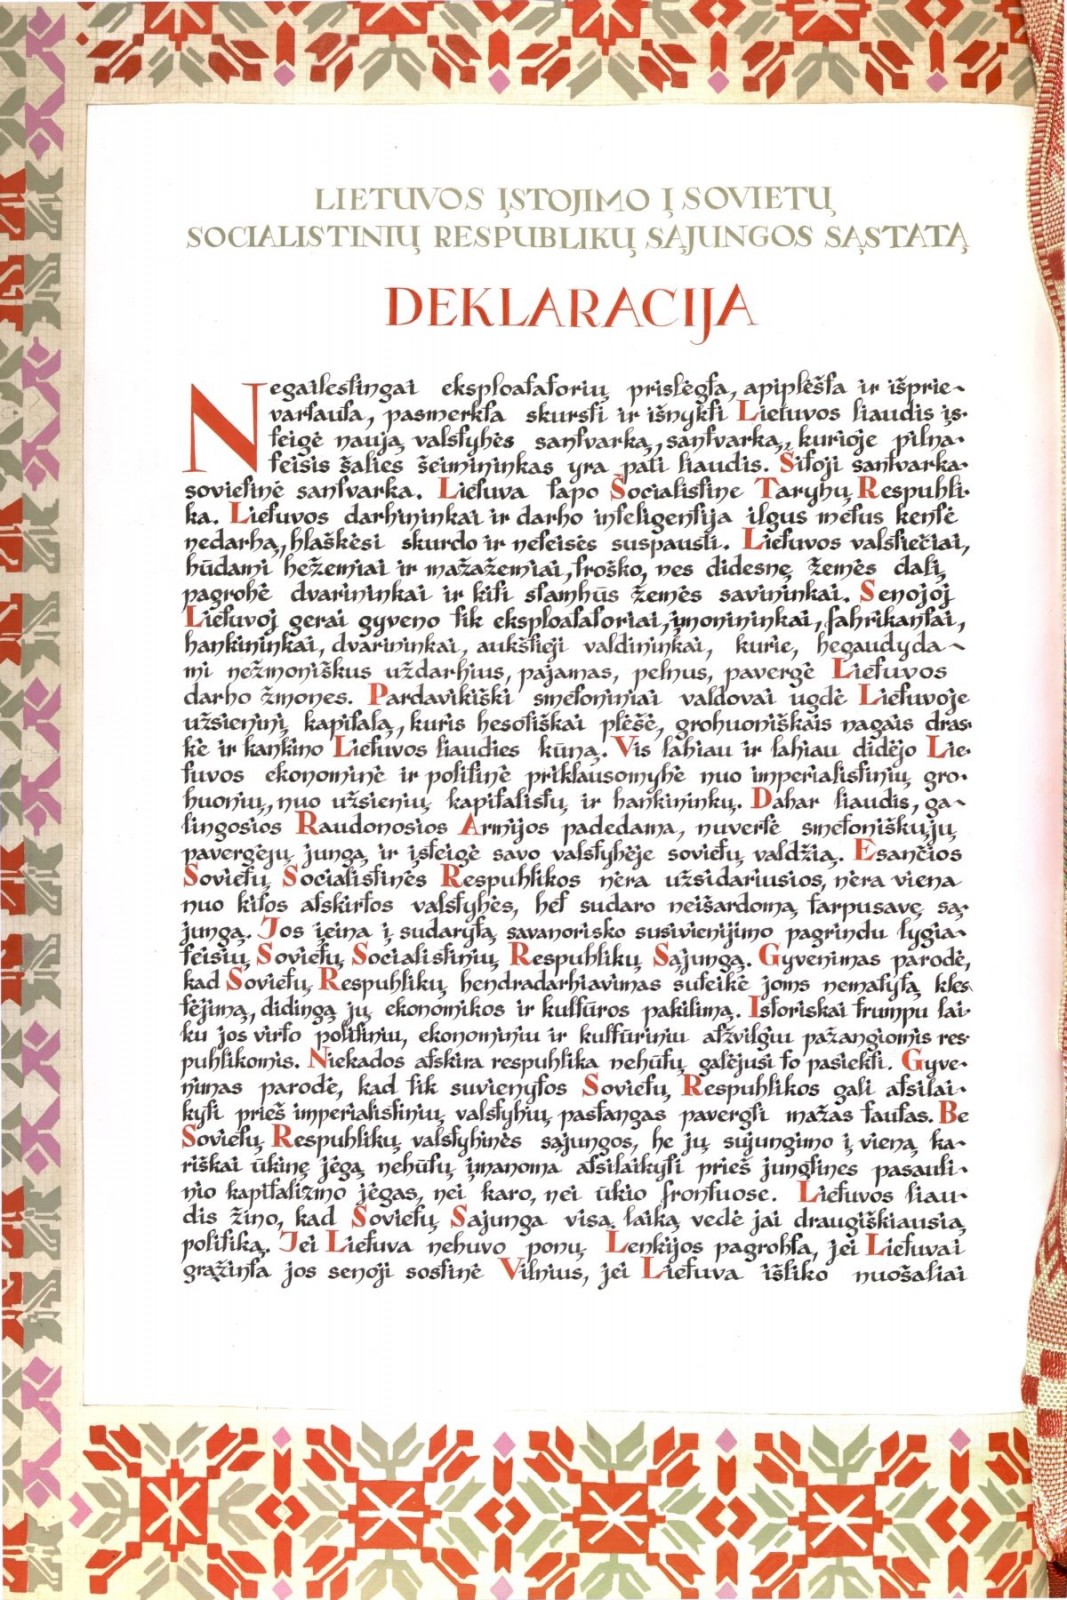 LIETUVOS ĮSTOJIMO Į SOVIETŲ
SOCIALISTINIŲ RESPUBLIKŲ SĄJUNGOS SĄSTATĄ
DEKLARACIJA
Negailestingai eksploatatorių prislėgta, apiplėšta ir išprie-
vartauta, pasmerkta skursti ir išnykti Lietuvos liaudis įs-
teigė naują valstybės santvarką, santvarką, kurioje pilna-
teisis šalies šeimininkas yra pati liaudis. Šitoji santvarka-
sovietinė santvarka. Lietuva tapo Socialistine Tarybų Respubli-
ka. Lietuvos darbininkai ir darbo inteligentija ilgus metus kentė
nedarbą, blaškėsi skurdo ir neteisės suspausti. Lietuvos valstiečiai,
būdami bežemiai ir mažažemiai, troško, nes didesnę žemės dalį
pagrobė dvarininkai ir kiti stambūs žemės savininkai. Senojoj
Lietuvoj gerai gyveno tik eksploatatoriai, įmonininkai, fabrikantai,
bankininkai, dvarininkai, aukštieji valdininkai, kurie, begaudyda-
mi nežmoniškus uždarbius, pajamas, pelnus, pavergė Lietuvos
darbo žmones. Pardavikiški smetoniniai valdovai ugdė Lietuvoje
užsieninį kapitalą, kuris besotiškai plėšė, grobuoniškais nagais dras-
kė ir kankino Lietuvos liaudies kūną. Vis labiau ir labiau didėjo Lie-
tuvos ekonominė ir politinė priklausomybė nuo imperialistinių gro-
buonių, nuo užsienių kapitalistų ir bankininkų. Dabar liaudis, ga-
lingosios Raudonosios Armijos padedama, nuvertė smetoniškųjų
pavergėjų jungą ir įsteigė savo valstybėje sovietų valdžią. Esančios
Sovietų Socialistinės Respublikos nėra užsidariusios, nėra viena
nuo kitos atskirtos valstybės, bet sudaro neišardomą tarpusavę są-
jungą. Jos įeina į sudarytą savanorisko susivienijimo pagrindu lygia-
teisių Sovietų Socialistinių Respublikų Sąjungą. Gyvenimas parodė,
kad Sovietų Respublikų bendradarbiavimas suteikė joms nematytą kles-
tėjimą, didingą jų ekonomikos ir kultūros pakilimą. Istoriskai trumpu lai-
ku jos virto politiniu, ekonominiu ir kultūriniu atžvilgiu pažangiomis res-
publikomis. Niekados atskira respublika nebūtų galėjusi to pasiekti. Gyve-
nimas parodė, kad tik suvienytos Sovietų Respublikos gali atsilai-
kyti prieš imperialistinių valstybių pastangas pavergti mažas tautas. Be
Sovietų Respublikų valstybinės sąjungos, be jų sujungimo į vieną ka-
riškai ūkinę jėgą nebūtų įmanoma atsilaikyti prieš jungtines pasauli-
nio kapitalizmo jėgas, nei karo, nei ūkio frontuose. Lietuvos liau-
dis žino, kad Sovietų Sąjunga visą laiką vedė jai draugiškiausią
politiką. Jei Lietuva nebuvo ponų Lenkijos pagrobta, jei Lietuvai
grąžinta jos senoji sostinė Vilnius, jei Lietuva išliko nuošaliai